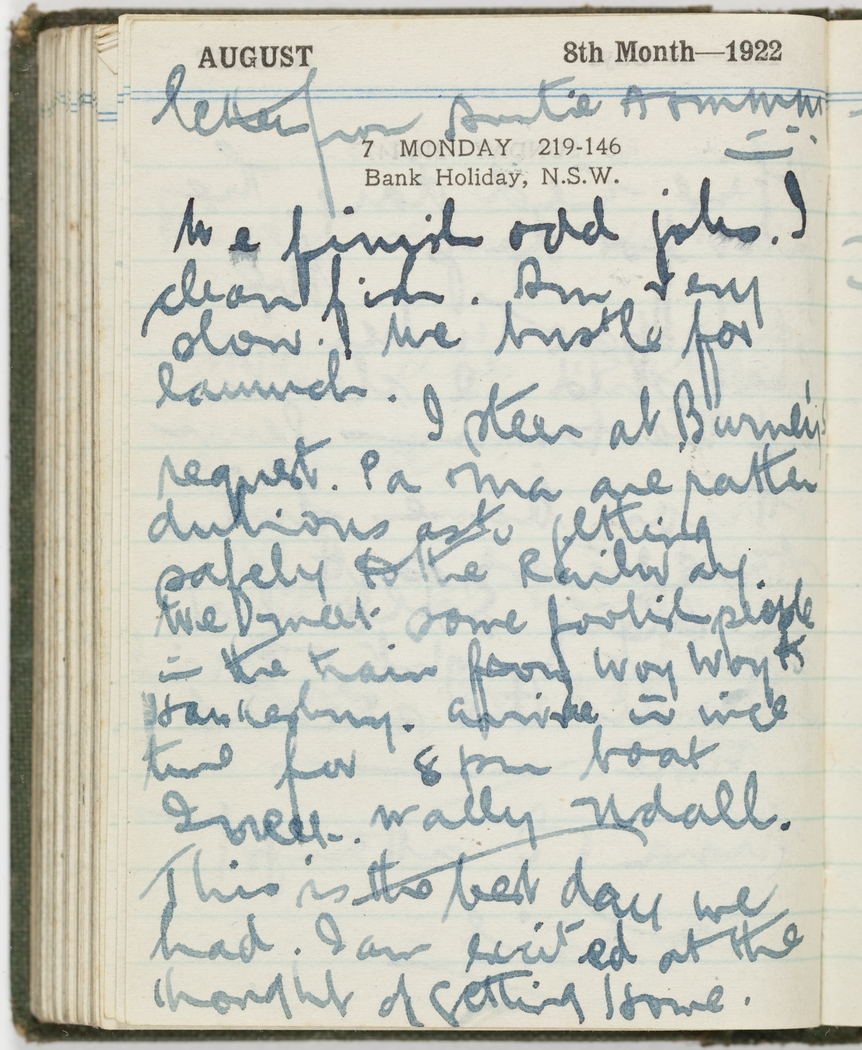 AUGUST 8th Month—1922
letter from Auntie
7 MONDAY 219-146
Bank Holiday, N.S.W.
We finish odd jobs. I
clean fish. Am very
slow. We bustle for
launch.
I steer at Burney's
request. Pa & ma are rather
dubious as to getting
safely to the Railway.
We meet some foolish people
in the train from Woy Woy to
Hawkesbury. arrive in nice
time for 8 pm boat
I meet Wally Udall.
This is the best day we
had. I am excited at the
thought of getting home.